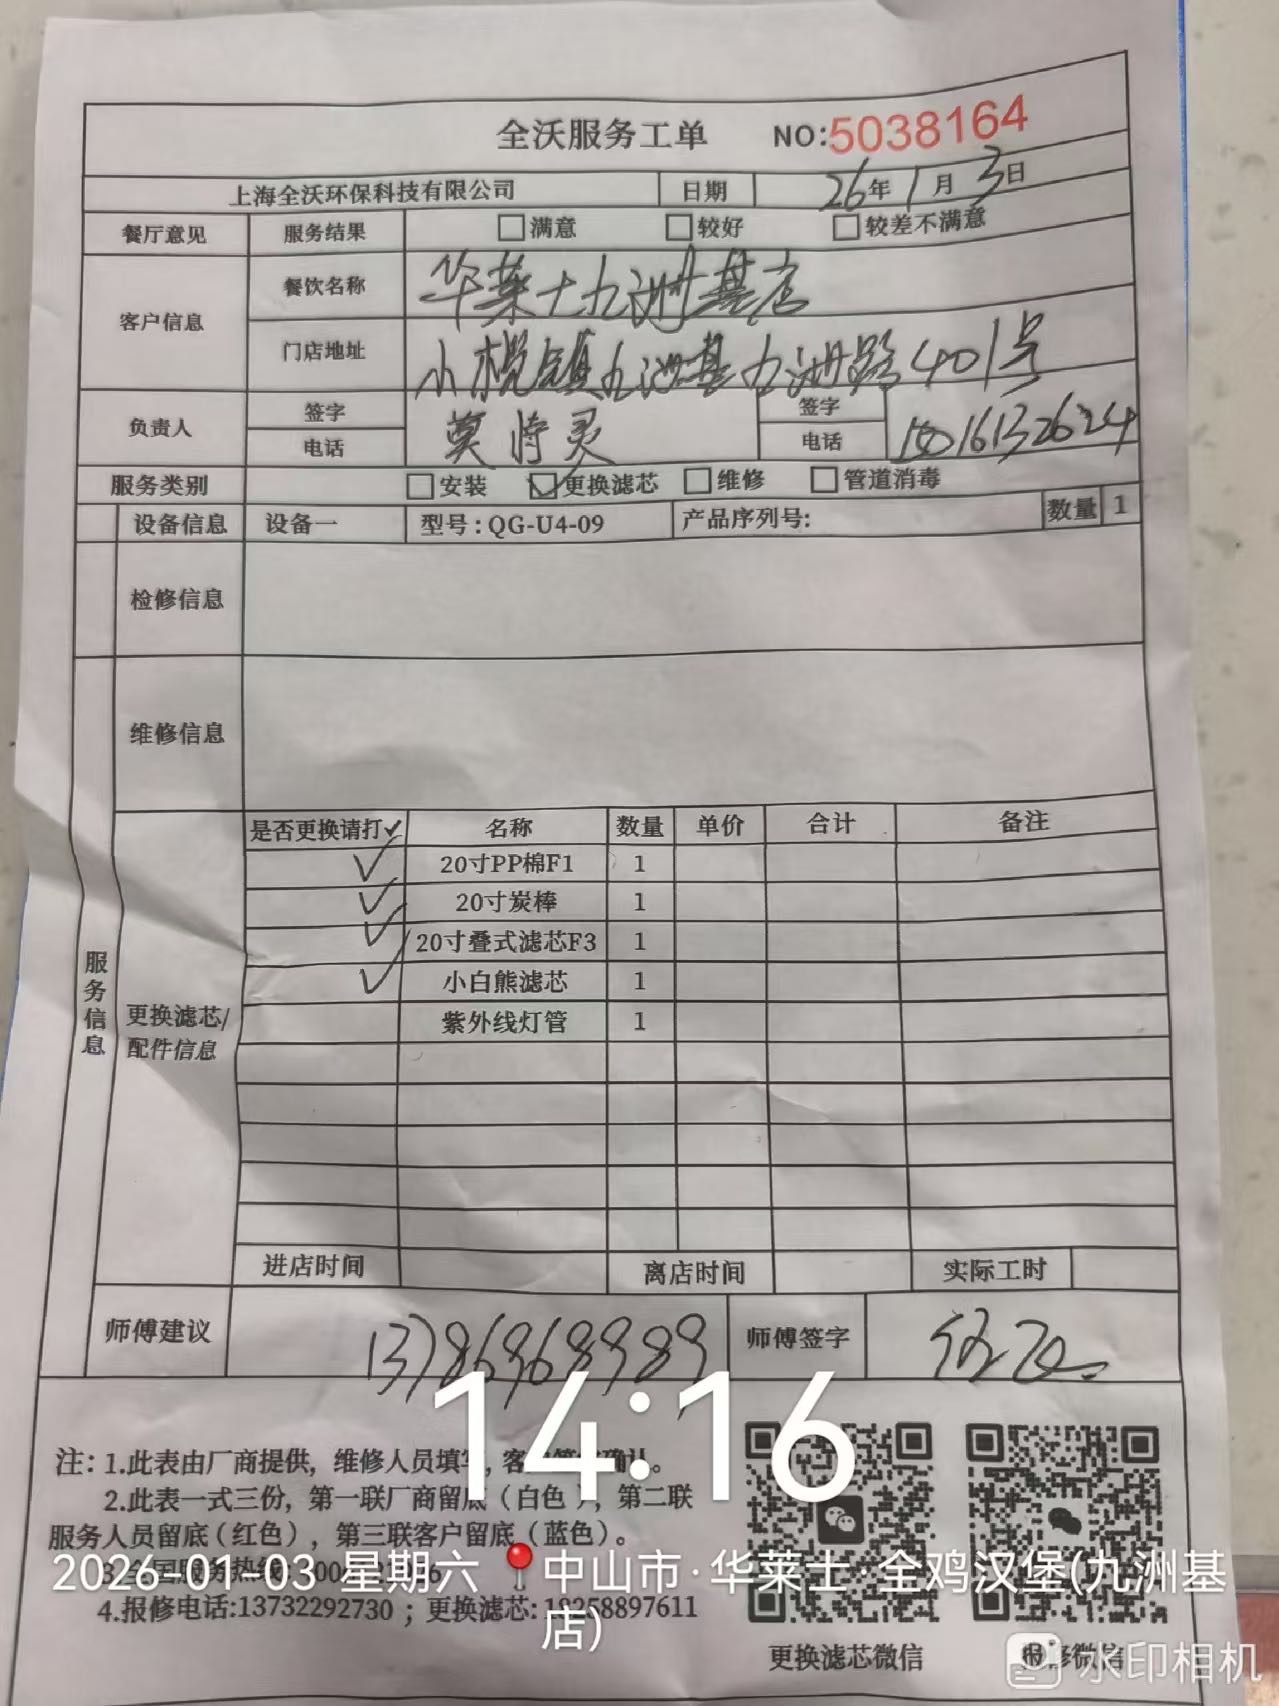 全沃服务工单 NO:5038164
上海全沃环保科技有限公司 日期 26年1月3日
餐厅意见 服务结果 □满意 □较好 □较差不满意
客户信息 餐饮名称 华莱士九洲基店
门店地址 小榄镇九洲基九洲路401号
负责人 签字 莫诗灵 签字
电话 电话 15016132624
服务类别 □安装 ☑更换滤芯 □维修 □管道消毒
设备信息 设备一 型号:QG-U4-09 产品序列号: 数量 1
检修信息
维修信息
服务信息
更换滤芯/
配件信息
是否更换请打✓ 名称 数量 单价 合计 备注
✓ 20寸PP棉F1 1
✓ 20寸炭棒 1
✓ 20寸叠式滤芯F3 1
✓ 小白熊滤芯 1
紫外线灯管 1
进店时间 离店时间 实际工时
师傅建议 13786968989 师傅签字
14:16
注: 1.此表由厂商提供, 维修人员填写, 确认。
2.此表一式三份, 第一联厂商留底(白色), 第二联
服务人员留底(红色), 第三联客户留底(蓝色)。
3.全国服务热线:
2026-01-03 星期六 中山市·华莱士·全鸡汉堡(九洲基
店)
4.报修电话:13732292730 ; 更换滤芯: 58897611
更换滤芯微信 报修微信
水印相机